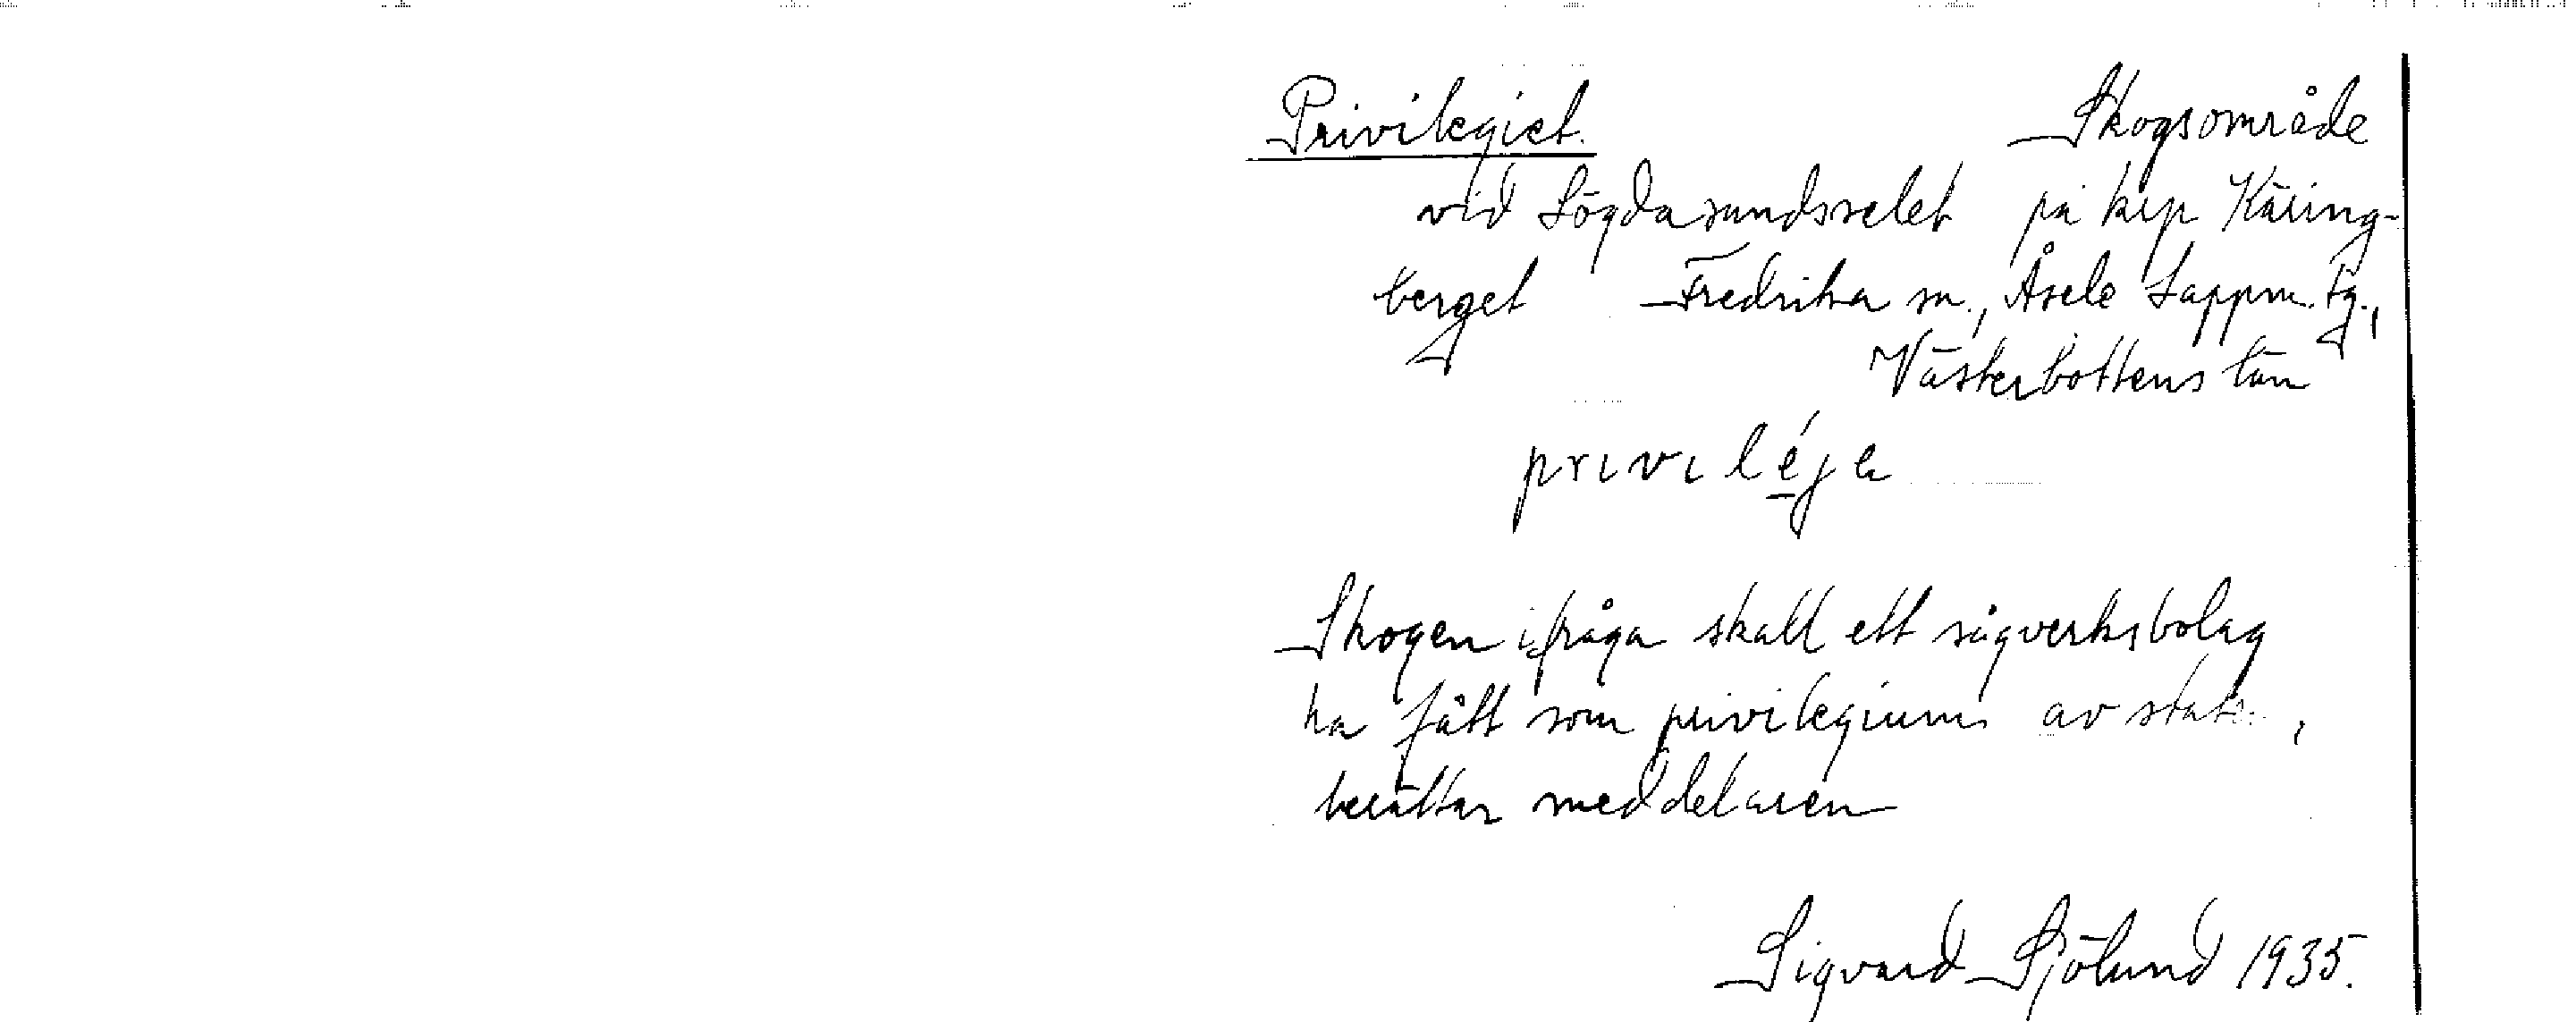 Privilegiet. Skogsområde
vid Lögdasundsselet på krp Käring-
berget Fredrika sn., Åsele Lappm. tg.,
Västerbottens län
privileja
Skogen ifråga skall ett sågverksbolag
ha fått som privilegium av staten,
berättar meddelaren
Sigvard Sjölund 1935.